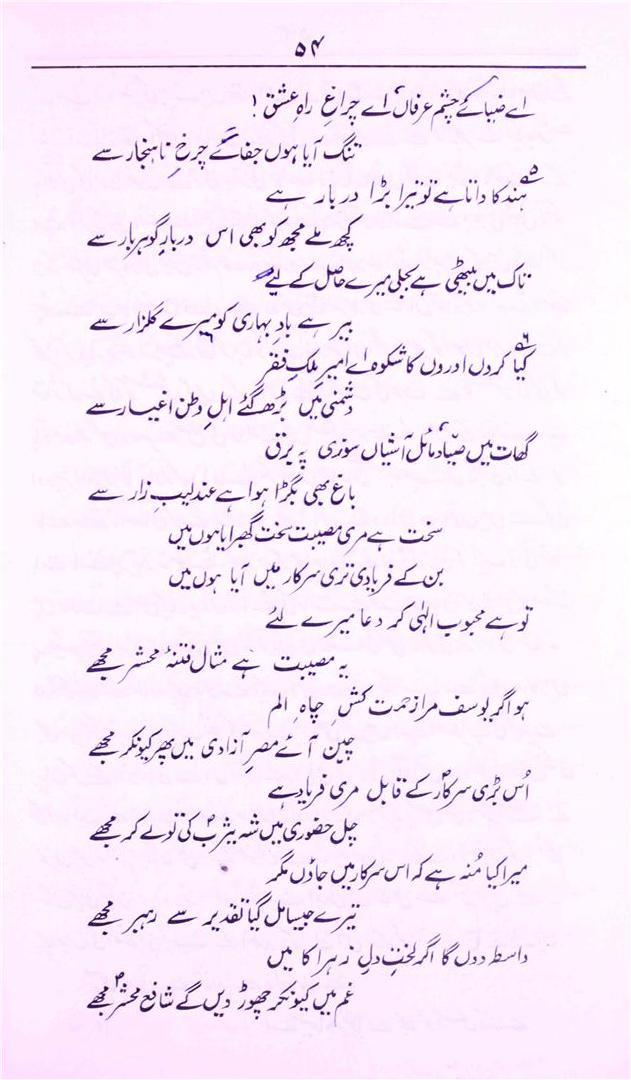 ۵۴
اے ضیائے چشم عرفاں اے چراغِ راہِ عشق!
تنگ آیا ہوں جفائے چرخِ ناہنجار سے
۵ ہند کا داتا ہے تو تیرا بڑا دربار ہے
کچھ ملے مجھ کو بھی اس دربارِ گوہر بار سے
تاک میں بیٹھی ہے بجلی میرے حاصل کے لیے
بیر ہے بادِ بہاری کو میرے گلزار سے
۶ کیا کروں اوروں کا شکوہ اے امیرِ ملکِ فقر
دشمنی میں بڑھ گئے اہلِ وطن اغیار سے
گھات میں صیّاد مائل آشیاں سوزی پہ برق
باغ بھی بگڑا ہوا ہے عندلیبِ زار سے
سخت ہے مری مصیبت سخت گھبرایا ہوں میں
بن کے فریادی تری سرکار میں آیا ہوں میں
تو ہے محبوب الٰہی کر دعا میرے لئے
یہ مصیبت ہے مثال فتنۂ محشر مجھے
ہو اگر یوسف مرا زحمت کشِ چاہِ الم
چین آئے مصرِ آزادی میں پھر کیونکر مجھے
اُس بڑی سرکار کے قابل مری فریاد ہے
چل حضوری میں شہ یثربؐ کی تو لے کر مجھے
میرا کیا مُنہ ہے کہ اس سرکار میں جاؤں مگر
تیرے جیسا مل گیا تقدیر سے رہبر مجھے
واسطہ دوں گا اگر لختِ دلِ زہرا کا میں
غم میں کیونکر چھوڑ دیں گے شافع محشرؐ مجھے